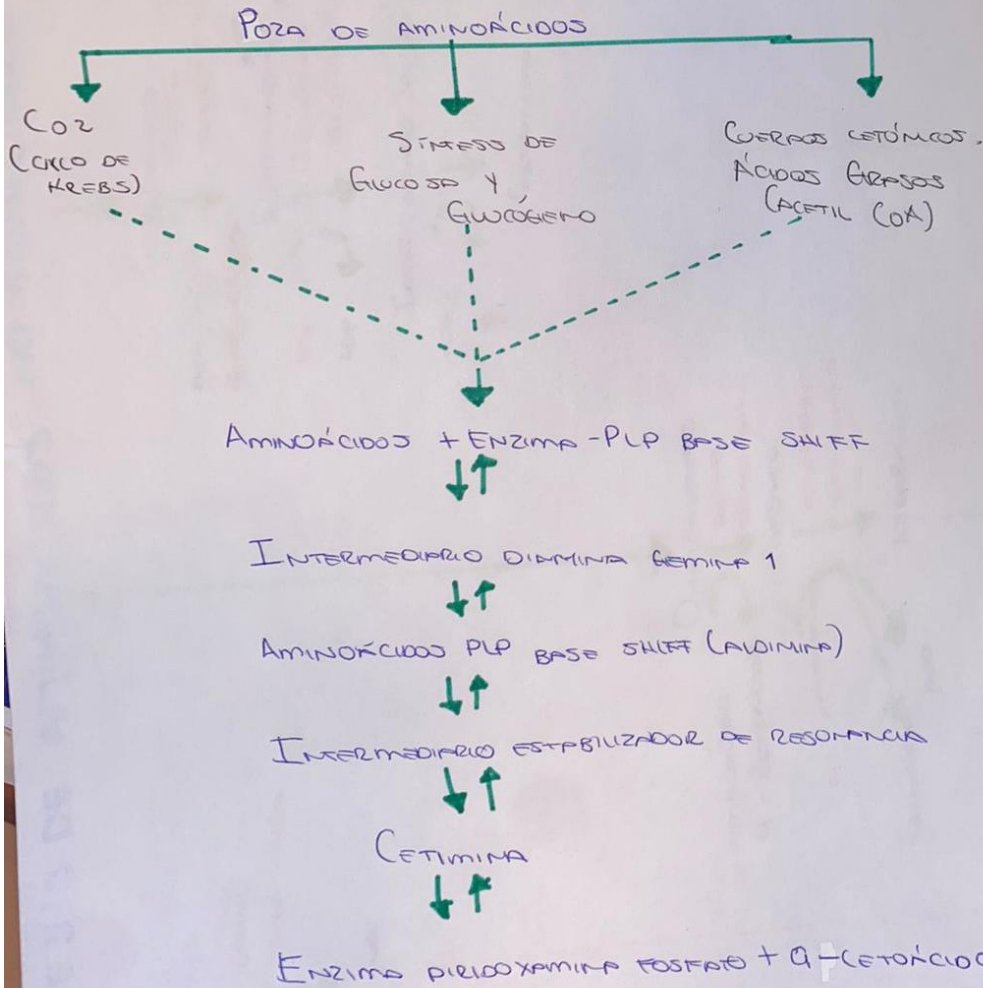 POZA DE AMINOÁCIDOS
CO2
(CICLO DE
KREBS)
SÍNTESIS DE
GLUCOSA Y
GLUCÓGENO
CUERPOS CETÓNICOS.
ÁCIDOS GRASOS
(ACETIL COA)
AMINOÁCIDOS + ENZIMA-PLP BASE SHIFF
INTERMEDIARIO DIAMINA GEMINA 1
AMINOÁCIDOS PLP BASE SHIFF (ALDIMINA)
INTERMEDIARIO ESTABILIZADOR DE RESONANCIA
CETIMINA
ENZIMA PIRIDOXAMINA FOSFATO + α-CETOÁCIDO